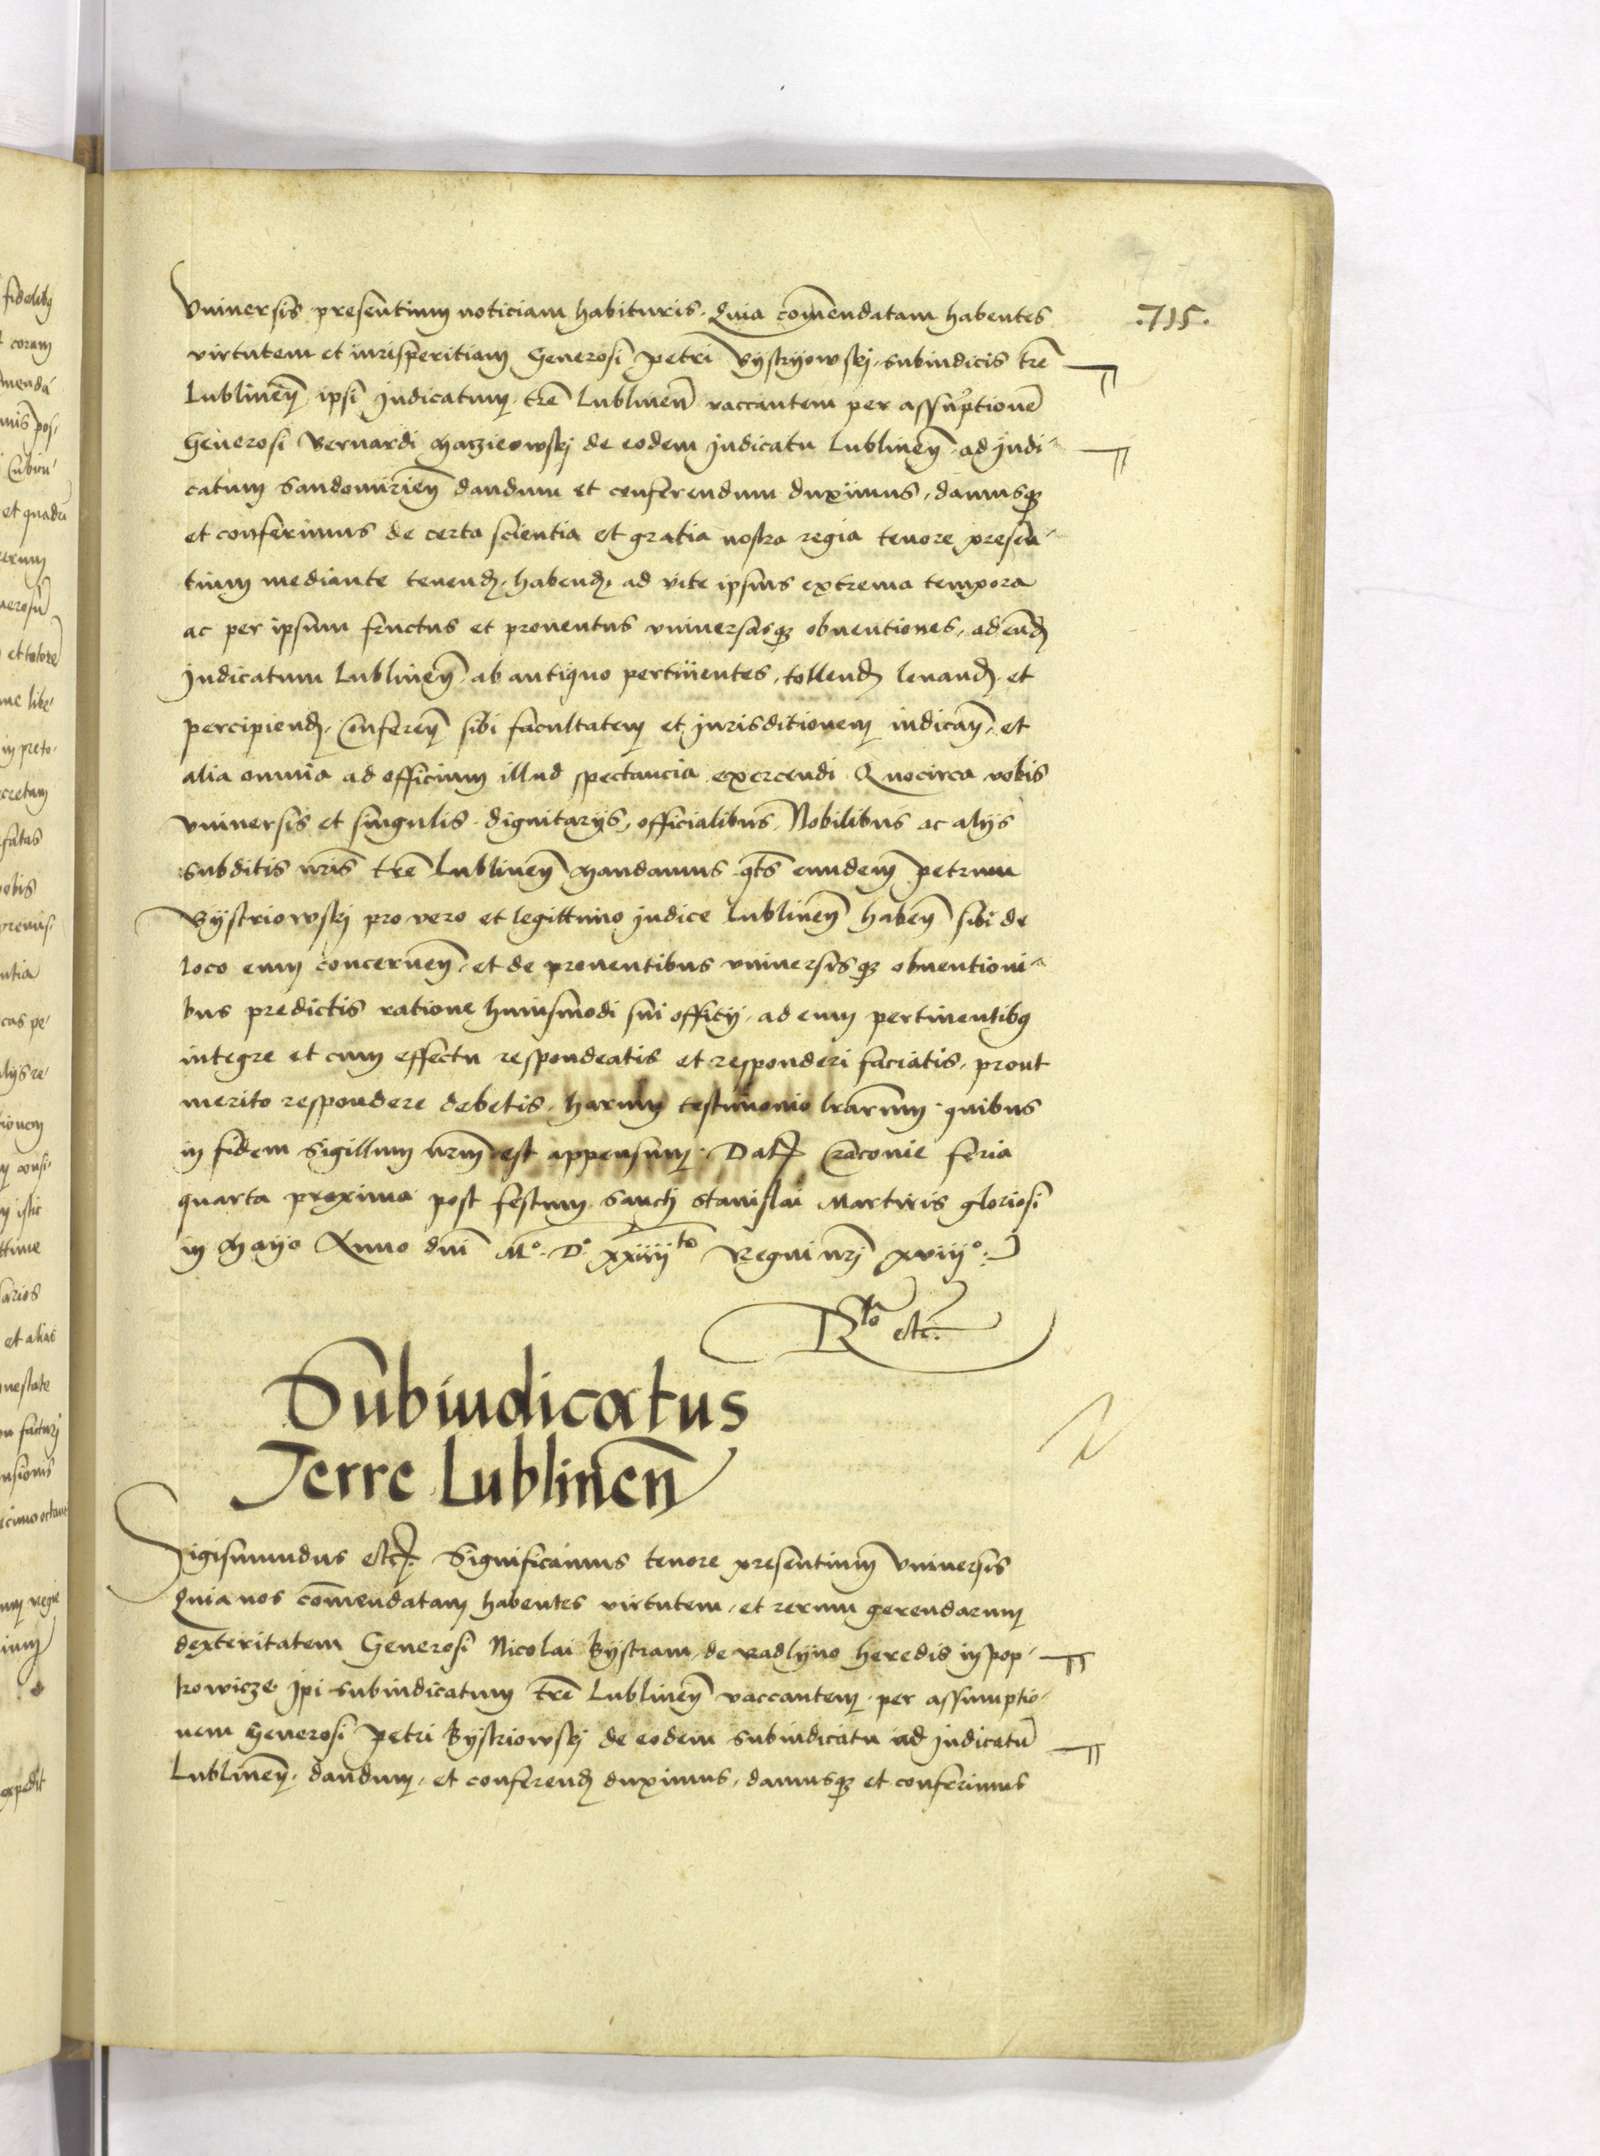 .715.
Vniuersis presentium noticiam habituris. Quia com̄endatam habentes
virtutem et iurisperitiam Generosi Petri Bystryowskj, subiudicis trē
Lublinen̄ ipsi Judicatum trē Lublinen̄ vaccantem per assūptionē
Generosi Bernardi Maczieowskj de eodem Judicatu Lublinen̄ ad Judi-
catum Sandomirien̄ dandum et conferendum duximus, damusq3
et conferimus de certa scientia et gratia nostra regia tenore presen-
tium mediante tenend̄, habend̄, ad vite ipsius extrema tempora
ac per ipsum fructus et prouentus vniuersasq3 obuentiones, ad eund̄
Judicatum Lublinen̄ ab antiquo pertinentes, tollend̄ leuand̄ et
percipiend̄, Conferen̄ sibi facultatem et Jurisditionem iudican̄, et
alia omnia ad officium illud spectancia exercendi Quocirca vobis
vniuersis et singulis dignitarijs, officialibus, Nobilibus ac alijs
subditis nrīs trē Lublinen̄ Mandamus qt̄s eundem Petrum
Bystriowskj pro vero et legittimo Judice Lublinen̄ haben̄ sibi de
loco eum concernen̄, et de prouentibus vniuersisq3 obuentioni-
bus predictis ratione huiusmodi sui officij ad eum pertinentibus
integre et cum effectu respondeatis et responderi faciatis, prout
merito respondere debetis, harum testimonio lrārum quibus
in fidem Sigillum nrm̄ est appensum. Dat̄ Cracouie feria
quarta proxima post festum Sancti Stanislai Martiris gloriosi
in Mayo Anno dnī Mº. Dº. xxiiijto Regni nrj̄ xviijº.
Rlo etc.
Subiudicatus
Terre Lublinen̄
Sigismundus etc. Significamus tenore presentium vniuersis
Quia nos com̄endatam habentes virtutem, et rerum gerendarum
dexteritatem Generosi Nicolai Bystram, de Radlyno heredis in Pop-
kowicze Ipi subiudicatum trē Lublinen̄ vaccantem per assumptio-
nem Generosi Petri Bystriowskj de eodem subiudicatu ad Judicatū
Lublinen̄, dandum, et conferend̄ duximus, damusq3 et conferimus